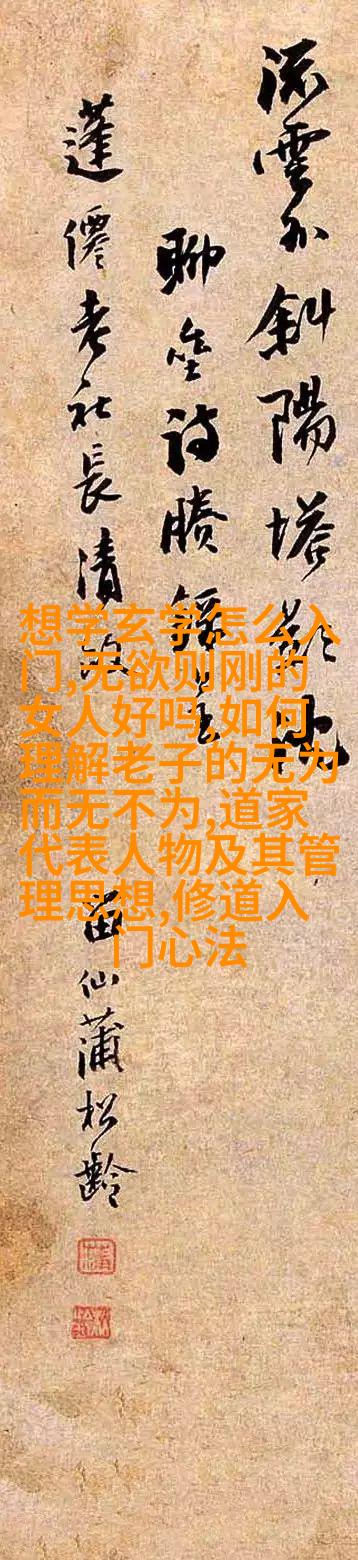 流雲外斜陽塔
聊詩賸
蓬僊老社長清
留仙蒲松齡
想学玄学怎么入
门,无欲则刚的
女人好吗,如何
理解老子的无为
而无不为,道家
代表人物及其管
理思想,修道入
门心法